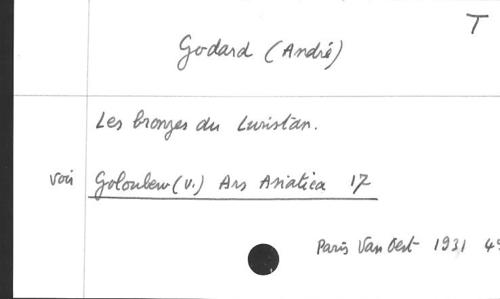 T
Godard (André)
Les bronzes du Luristan.
voir Goloubew (V.) Ars Asiatica 17
Paris Van Oest 1931 4°